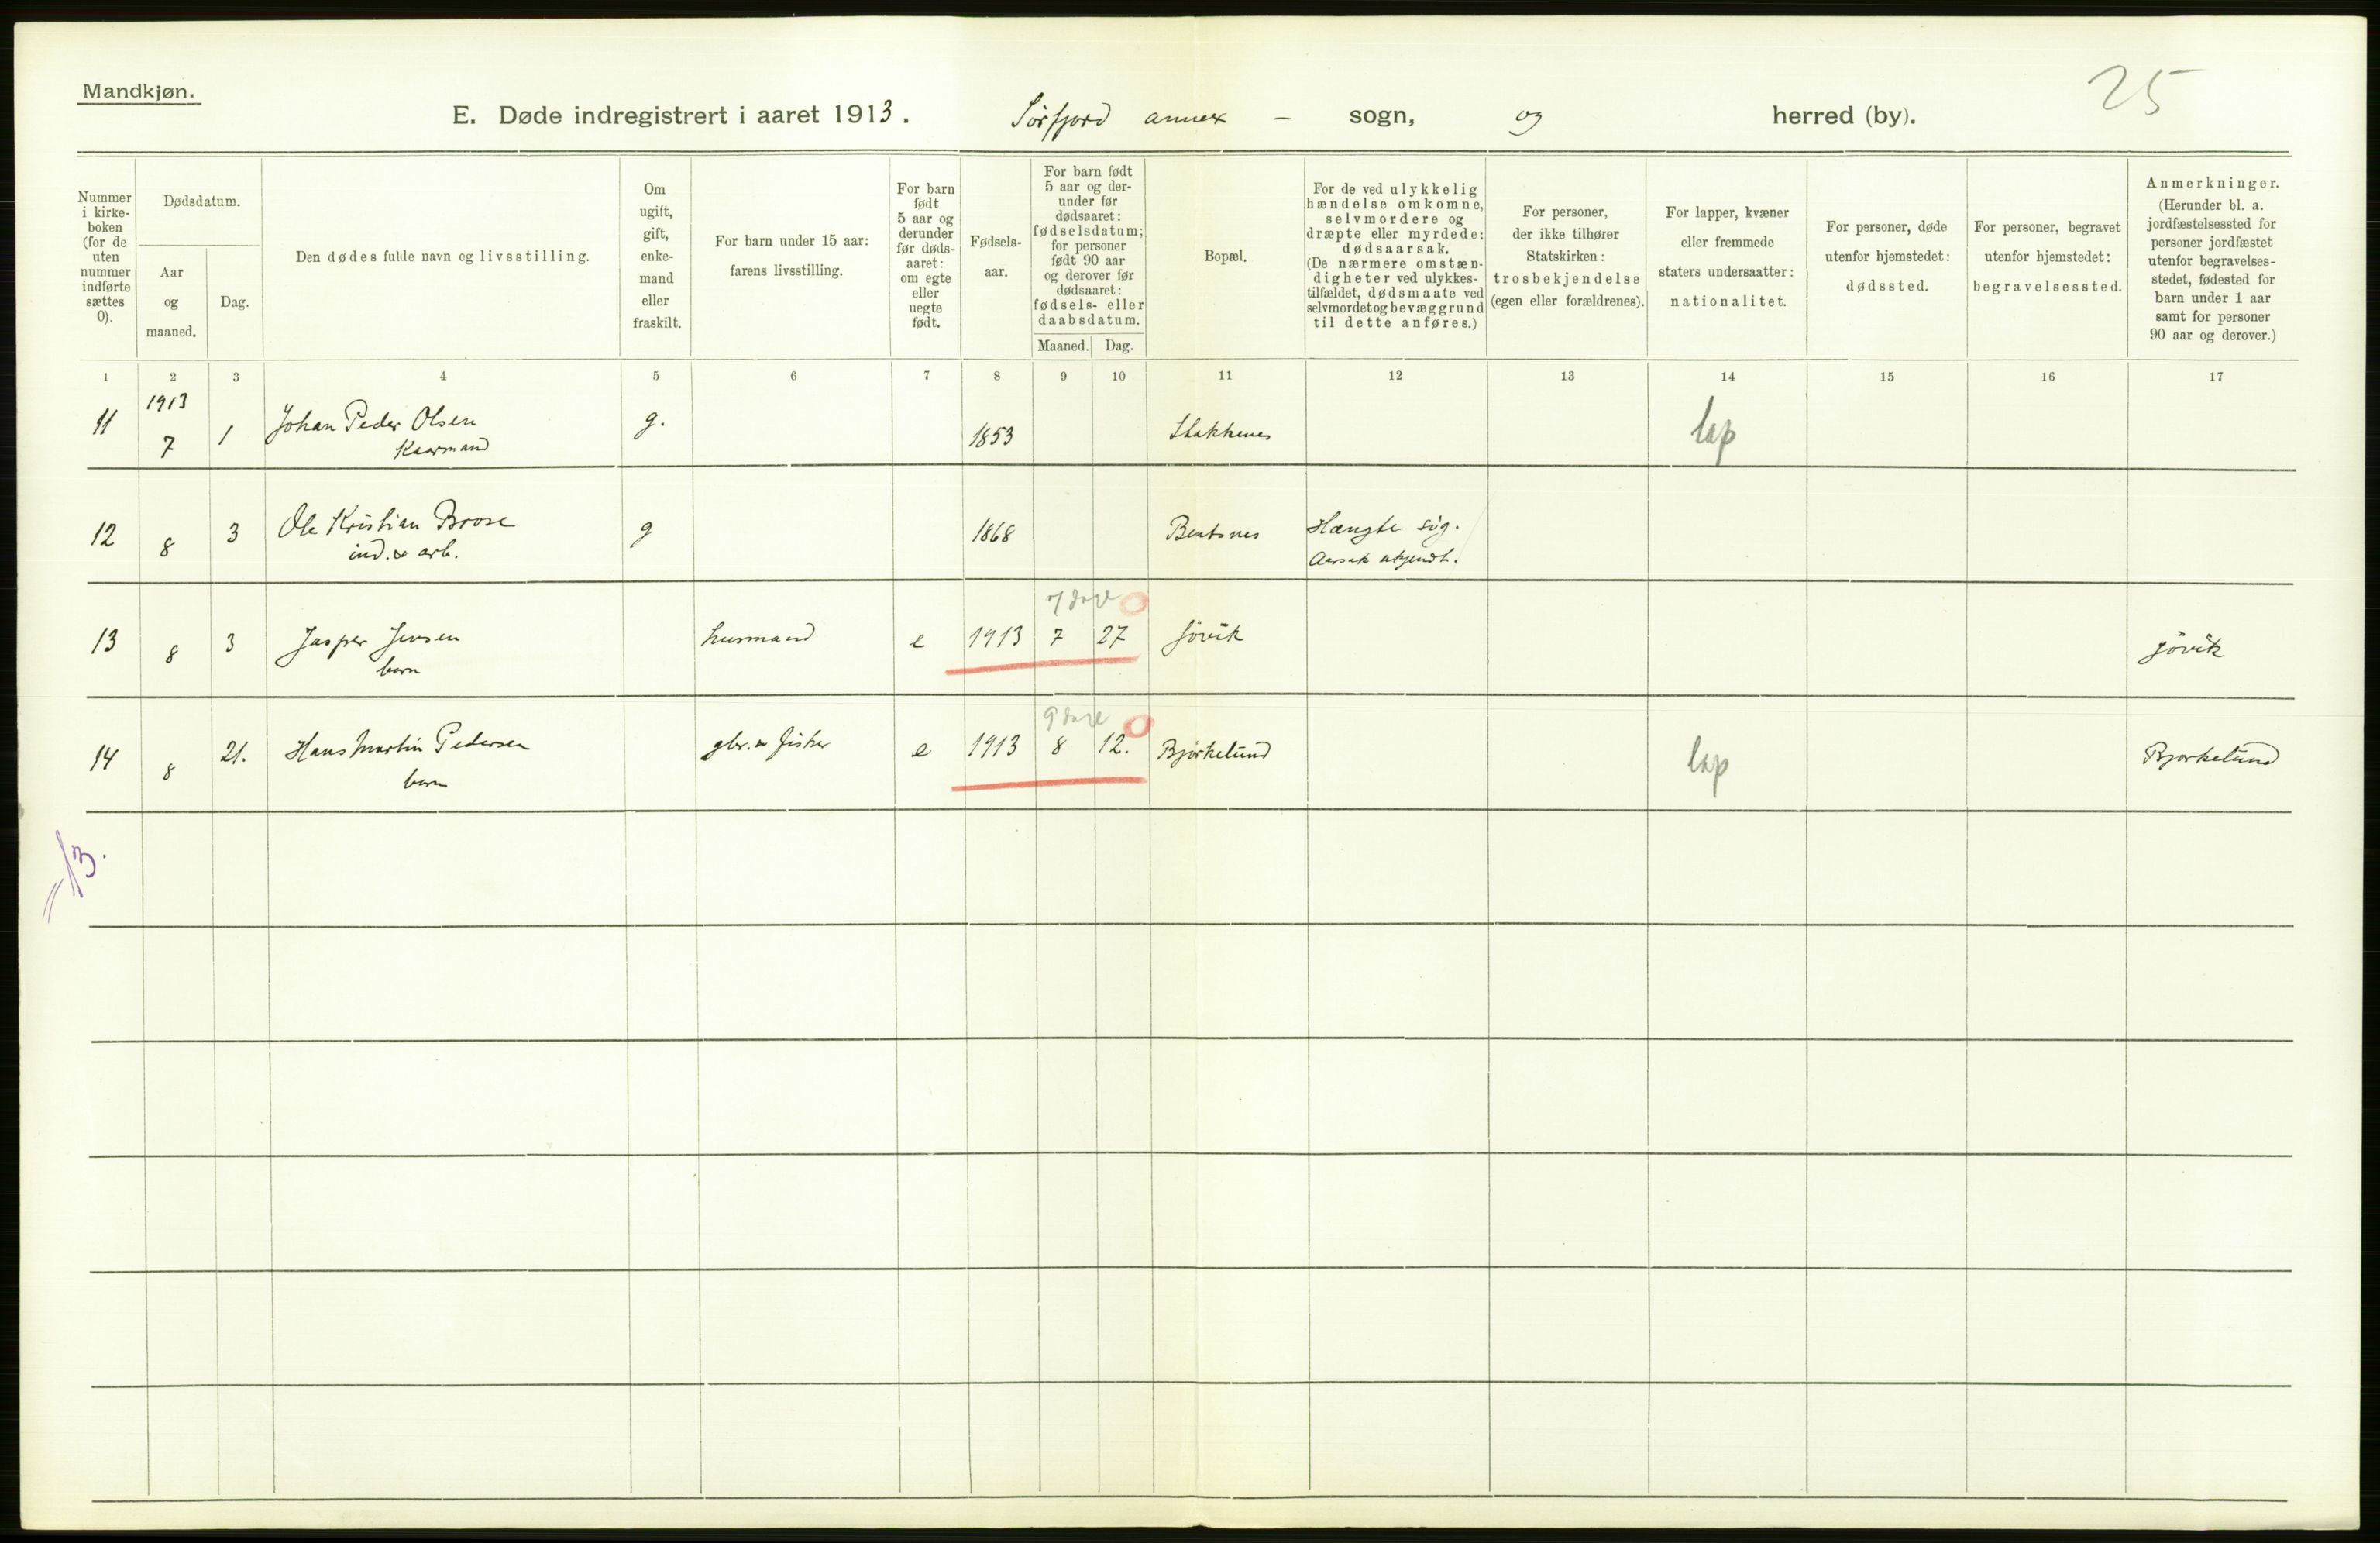 Mandkjøn.
25
E. Døde indregistrert i aaret 1913. Sörfjord annex – sogn, og herred (by).
Nummer i kirke-boken (for de uten nummer indførte sættes 0).
Dødsdatum.
Aar og maaned.
Dag.
Den dødes fulde navn og livsstilling.
Om ugift, gift, enke-mand eller fraskilt.
For barn under 15 aar: farens livsstilling.
For barn født 5 aar og derunder før døds-aaret: om egte eller uegte født.
Fødsels-aar.
For barn født 5 aar og der-under før dødsaaret: fødselsdatum; for personer født 90 aar og derover før dødsaaret: fødsels- eller daabsdatum.
Maaned. Dag.
Bopæl.
For de ved ulykkelig hændelse omkomne, selvmordere og dræpte eller myrdede: dødsaarsak. (De nærmere omstæn-digheter ved ulykkes-tilfældet, dødsmaate ved selvmordet og bevæggrund til dette anføres.)
For personer, der ikke tilhører Statskirken: trosbekjendelse (egen eller forældrenes).
For lapper, kvæner eller fremmede staters undersaatter: nationalitet.
For personer, døde utenfor hjemstedet: dødssted.
For personer, begravet utenfor hjemstedet: begravelsessted.
Anmerkninger. (Herunder bl. a. jordfæstelsessted for personer jordfæstet utenfor begravelses-stedet, fødested for barn under 1 aar samt for personer 90 aar og derover.)
1 2 3 4 5 6 7 8 9 10 11 12 13 14 15 16 17
1913
11 7 1 Johan Peder Olsen g. 1853 Stakkenes lap
Kaarmand
12 8 3 Ole Kristian Brose g 1868 Bentsnes Hængte sig.
ind. & arb. Aarsak ukjendt.
7 dage
13 8 3 Jasper Jensen husmand e 1913 7 27 Jövik Jövik
barn
9 dage
14 8 21. Hans Martin Pedersen gbr. & fisker e 1913 8 12. Bjørkelund lap Bjorkelund
barn
=13.